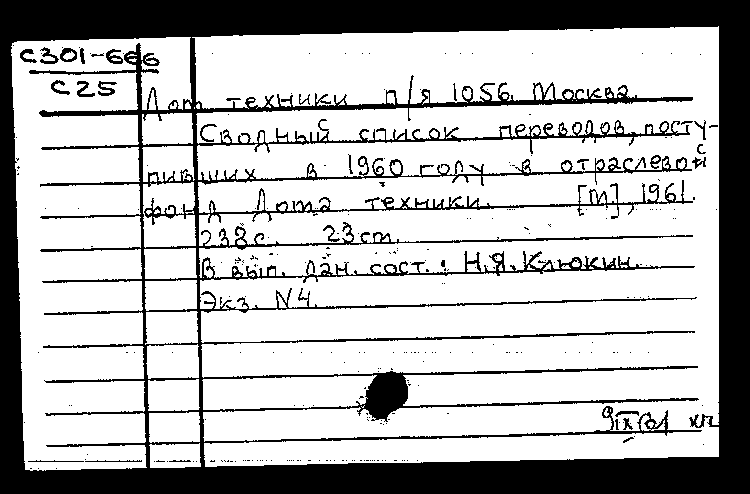 С301-666
С25
Дом техники п/я 1056. Москва.
Сводный список переводов, посту-
пивших в 1960 году в отраслевой
фонд Дома техники. [М], 1961.
238с. 23см.
В вып. дан. сост.: Н.Я. Клюкин.
Экз. N4.
9/IX61 кп